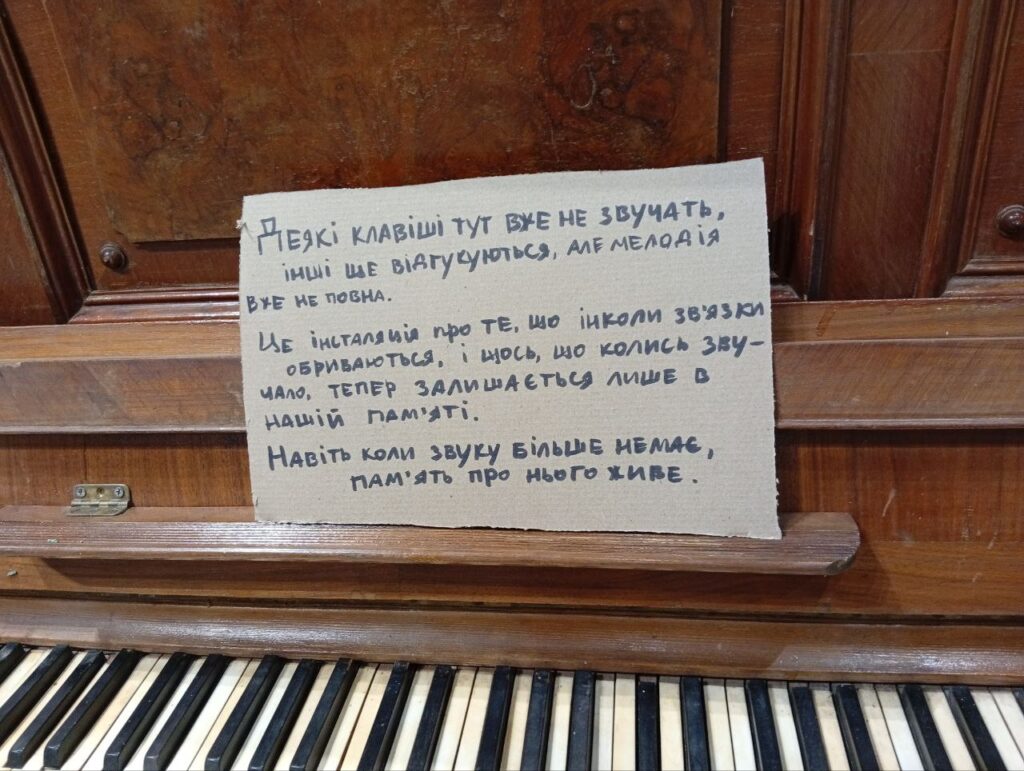 Деякі клавіші тут вже не звучать,
інші ще відгукуються, але мелодія
вже не повна.
Це інсталяція про те, що інколи зв'язки
обриваються, і щось, що колись зву-
чало, тепер залишається лише в
нашій пам'яті.
Навіть коли звуку більше немає,
пам'ять про нього живе.